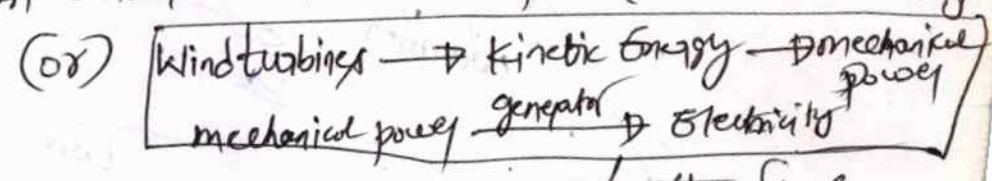 (or) Wind turbines → Kinetic Energy → mechanical power
mechanical power generator → Electricity